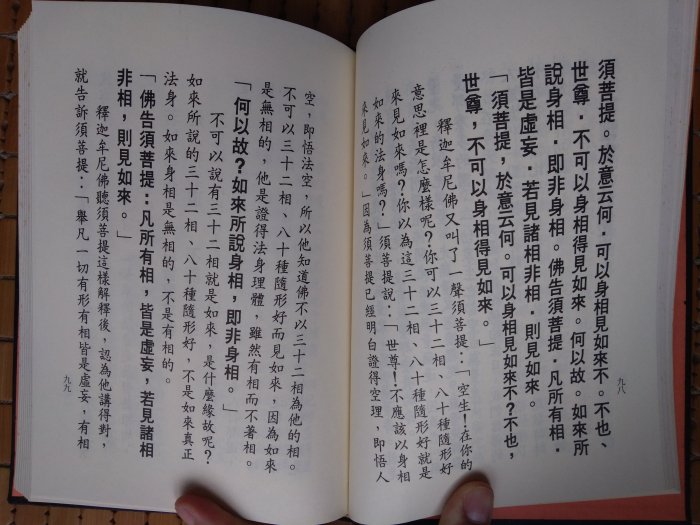 須菩提。於意云何。可以身相見如來不。不也、
世尊。不可以身相得見如來。何以故。如來所
說身相。即非身相。佛告須菩提。凡所有相。
皆是虛妄。若見諸相非相。則見如來。
「須菩提,於意云何。可以身相見如來不?不也,
世尊,不可以身相得見如來。」
釋迦牟尼佛又叫了一聲須菩提:「空生!在你的
意思裡是怎麼樣呢?你可以三十二相、八十種隨形好
來見如來嗎?你以為這三十二相、八十種隨形好就是
如來的法身嗎?」須菩提說:「世尊!不應該以身相
來見如來。」因為須菩提已經明白證得空理,即悟人
九八
空,即悟法空,所以他知道佛不以三十二相為他的相。
不可以三十二相、八十種隨形好而見如來,因為如來
是無相的,他是證得法身理體,雖然有相而不著相。
「何以故?如來所說身相,即非身相。」
不可以說有三十二相就是如來,是什麼緣故呢?
如來所說的三十二相、八十種隨形好,不是如來真正
法身。如來身相是無相的,不是有相的。
「佛告須菩提:凡所有相,皆是虛妄,若見諸相
非相,則見如來。」
釋迦牟尼佛聽須菩提這樣解釋後,認為他講得對,
就告訴須菩提:「舉凡一切有形有相皆是虛妄,有相
九九